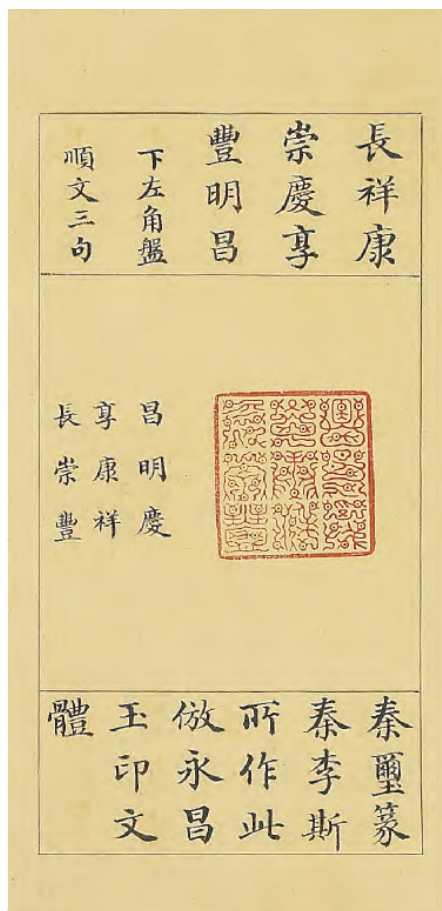 長祥康
崇慶享
豐明昌
下左角盤
順文三句
昌明慶
享康祥
長崇豐
秦璽篆
秦李斯
所作此
倣永昌
玉印文
體